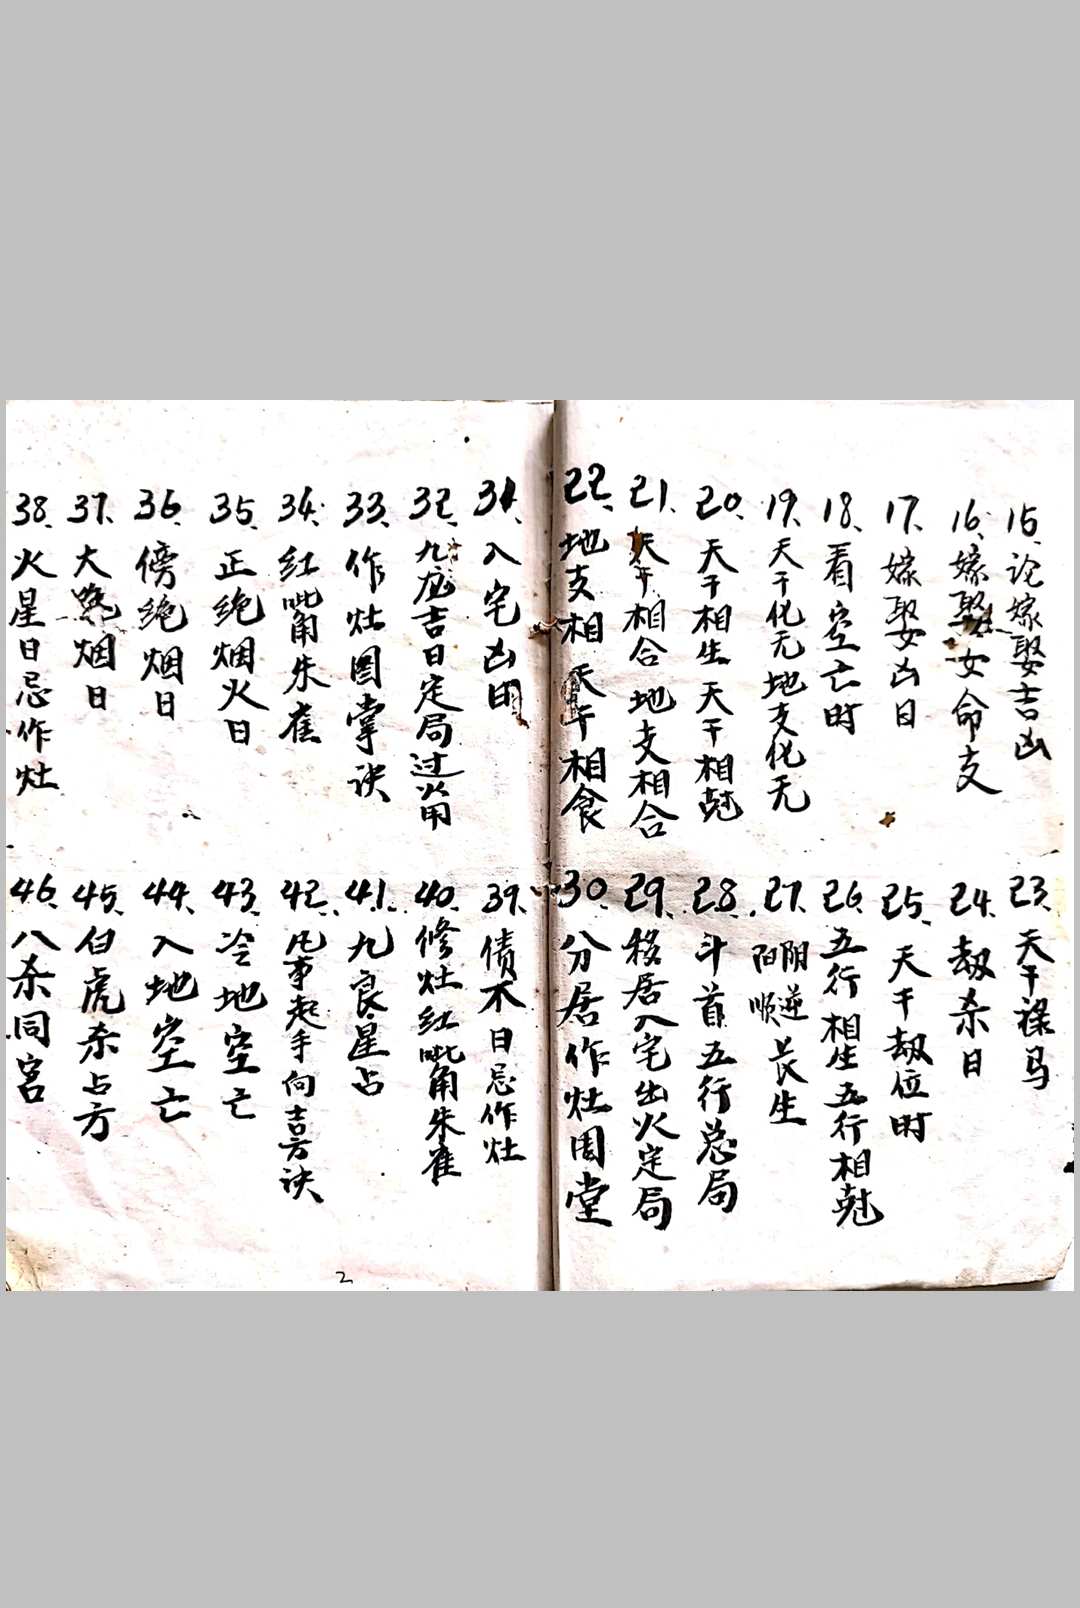 15、论嫁娶吉凶
16、嫁娶女命支
17、嫁娶凶日
18、看空亡时
19、天干化无地支化无
20、天干相生天干相尅
21、天干相合地支相合
22、地支相天干相食
23、天干禄马
24、劫杀日
25、天干劫位时
26、五行相生五行相尅
27、阴逆阳顺长生
28、斗首五行总局
29、移居入宅出火定局
30、分居作灶周堂
31、入宅凶用
32、九应吉日定局过火用
33、作灶图掌诀
34、红呲角朱雀
35、正绝烟火日
36、傍绝烟日
37、大烟日
38、火星日忌作灶
39、债不日忌作灶
40、修灶红呲角朱雀
41、九良星占
42、凡事起手向喜方诀
43、冷地空亡
44、入地空亡
45、白虎杀占方
46、八杀同宫
2